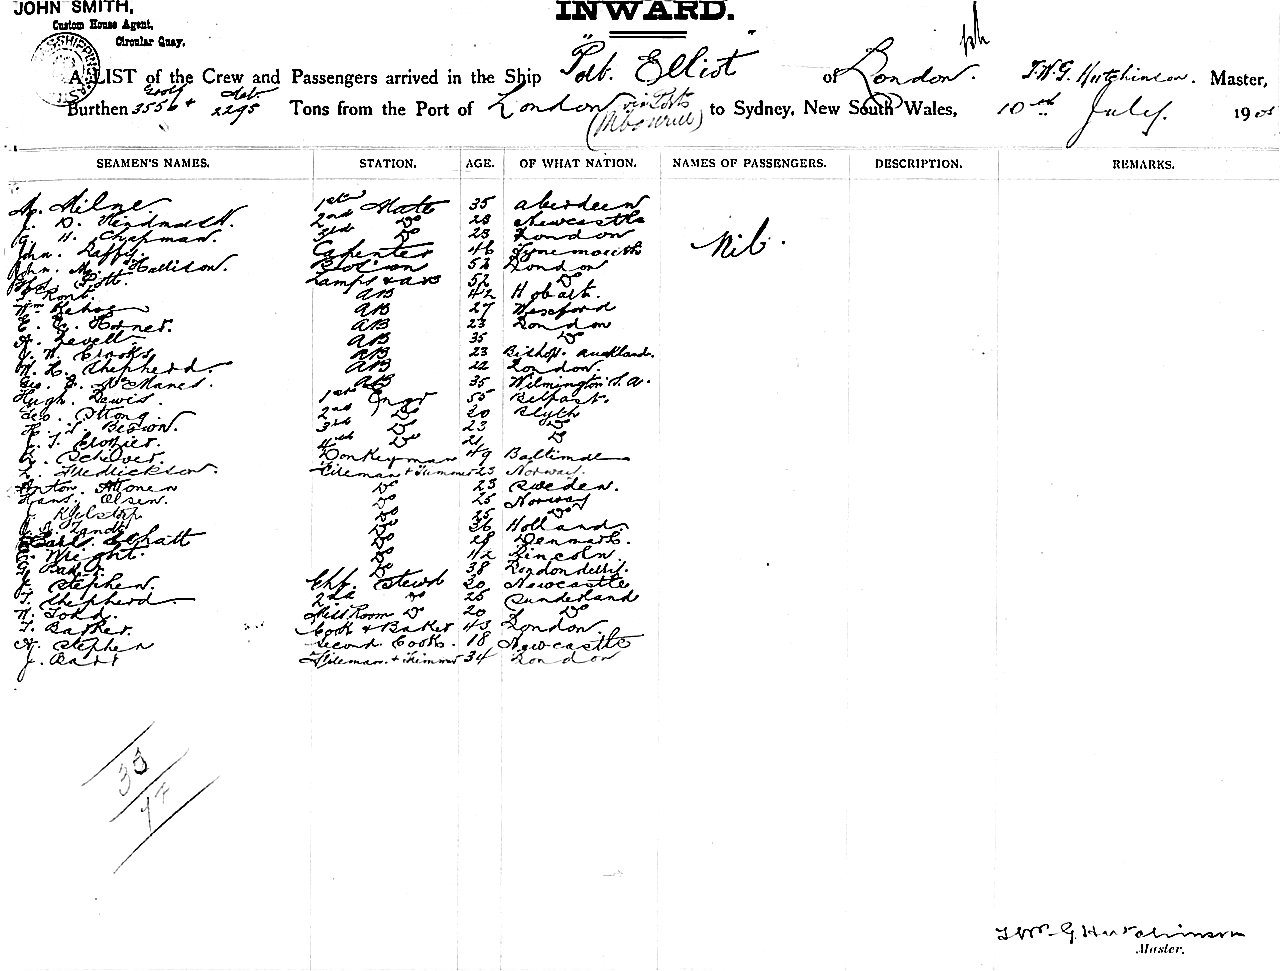 JOHN SMITH,
Custom House Agent,
Circular Quay.
INWARD.
A LIST of the Crew and Passengers arrived in the Ship "Port Elliot" of London. T.W.G. Hutchinson. Master,
Burthen 3556 2295 Tons from the Port of London via Ports to Sydney, New South Wales, 10th July. 190
SEAMEN'S NAMES. STATION. AGE. OF WHAT NATION. NAMES OF PASSENGERS. DESCRIPTION. REMARKS.
Milne 1st Mate 35 Aberdeen
J. D. 2nd Do 28 Newcastle
G. H. Chapman. 3rd Do 23 London
John. Carpenter 46 Tynemouth Nil.
John. Mc. Hallison. 52 London
Lamps & AB 52 Do
AB 42 Hobart.
Wm AB 27 Wexford
E. C. Horner. AB 23 London
A. Levell. AB 35 Do
J. W. Crooks AB 23 Bishop. Auckland.
W. L. Shepherd. AB 22 London.
Geo. E. McManes. AB 35 Wilmington
Hugh. Lewis. 1st Engr 55 Belfast.
Geo. Strong. 2nd Do 30 Blyth
Beston. 3rd Do 23 Do
J. T. Crozier. 4th Do 21 Do
Schelver. Donkeyman 49 Baltimore
L. Fredrickson. Fireman & Trimmer 23 Norway.
Anton. Do 23 Sweden.
Hans. Olsen. Do 25 Norway
J. Do 25 Do
Do 36 Holland.
Do 28 Denmark.
Wright. Do 42 Lincoln.
Do 38 Londonderry.
J. Stephen. Chf. Stewd 30 Newcastle
T. Shepherd. 2nd Do 25 Sunderland
W. Todd. Mess Room Do 20 Do
T. Barker. Cook & Baker 43 London
A. Stephen Second Cook. 18 Newcastle
J. Barr Fireman. & Trimmer 34 London
T. Wm. G. Hutchinson
Master.